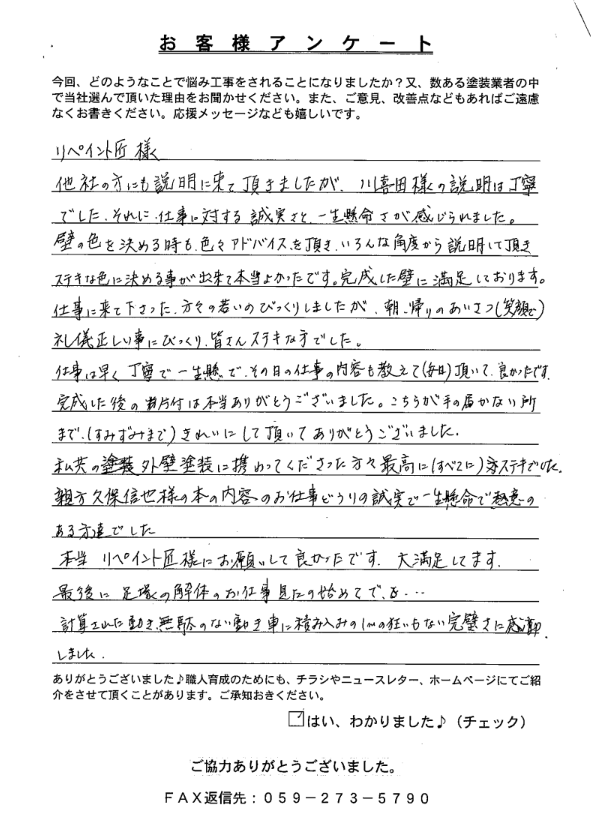 お客様アンケート
今回、どのようなことで悩み工事をされることになりましたか？又、数ある塗装業者の中
で当社選んで頂いた理由をお聞かせください。また、ご意見、改善点などもあればご遠慮
なくお書きください。応援メッセージなども嬉しいです。
リペイント匠様
他社の方にも説明に来て頂きましたが、川喜田様の説明は丁寧
でした。それに、仕事に対する誠実さと、一生懸命さが感じられました。
壁の色を決める時も、色々アドバイスを頂き、いろんな角度から説明して頂き
ステキな色に決める事が出来て本当よかったです。完成した壁に満足しております。
仕事に来て下さった、方々の若いのびっくりしましたが、朝、帰りのあいさつ(笑顔で)
礼儀正しい事にびっくり、皆さんステキな方でした。
仕事は早く丁寧で一生懸で、その日の仕事の内容も教えて(毎日)頂いて、良かったです。
完成した後の片付は本当ありがとうございました。こちらが手の届かない所
まで、(すみずみまで)きれいにして頂いてありがとうございました。
私共の塗装外壁塗装に携わってくださった方々最高に(すべてに)ステキでした。
親方久保信也様の本の内容のお仕事どうりの誠実で一生懸命で熱意の
ある方達でした
本当 リペイント匠様にお願いして良かったです。大満足してます。
最後に足場の解体のお仕事見たの始めてで、
計算された動き、無駄のない動き車に積み込みの1mmの狂いもない完璧さに感動
しました。
ありがとうございました♪職人育成のためにも、チラシやニュースレター、ホームページにてご紹
介をさせて頂くことがあります。ご承知おきください。
☑はい、わかりました♪（チェック）
ご協力ありがとうございました。
ＦＡＸ返信先：０５９－２７３－５７９０